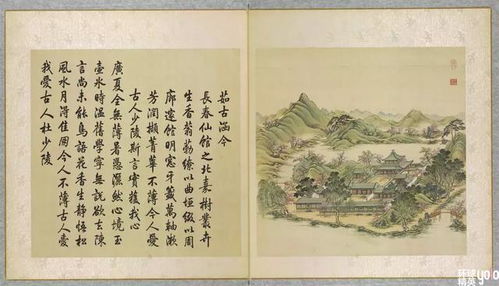 茹古涵今
長春仙館之北嘉樹叢卉
生香蓊葧繚以曲垣綴以周
廊邃館明窓牙籤萬軸漱
芳潤擷菁華不薄今人愛
古人少陵斯言實獲我心
廣夏全無薄暑憑灑然心境玉
壺冰時溫舊學寧無說欲去陳
言尚未能鳥語花香生靜悟松
風水月得佳朋今人不薄古人愛
我愛古人杜少陵
环球
精英